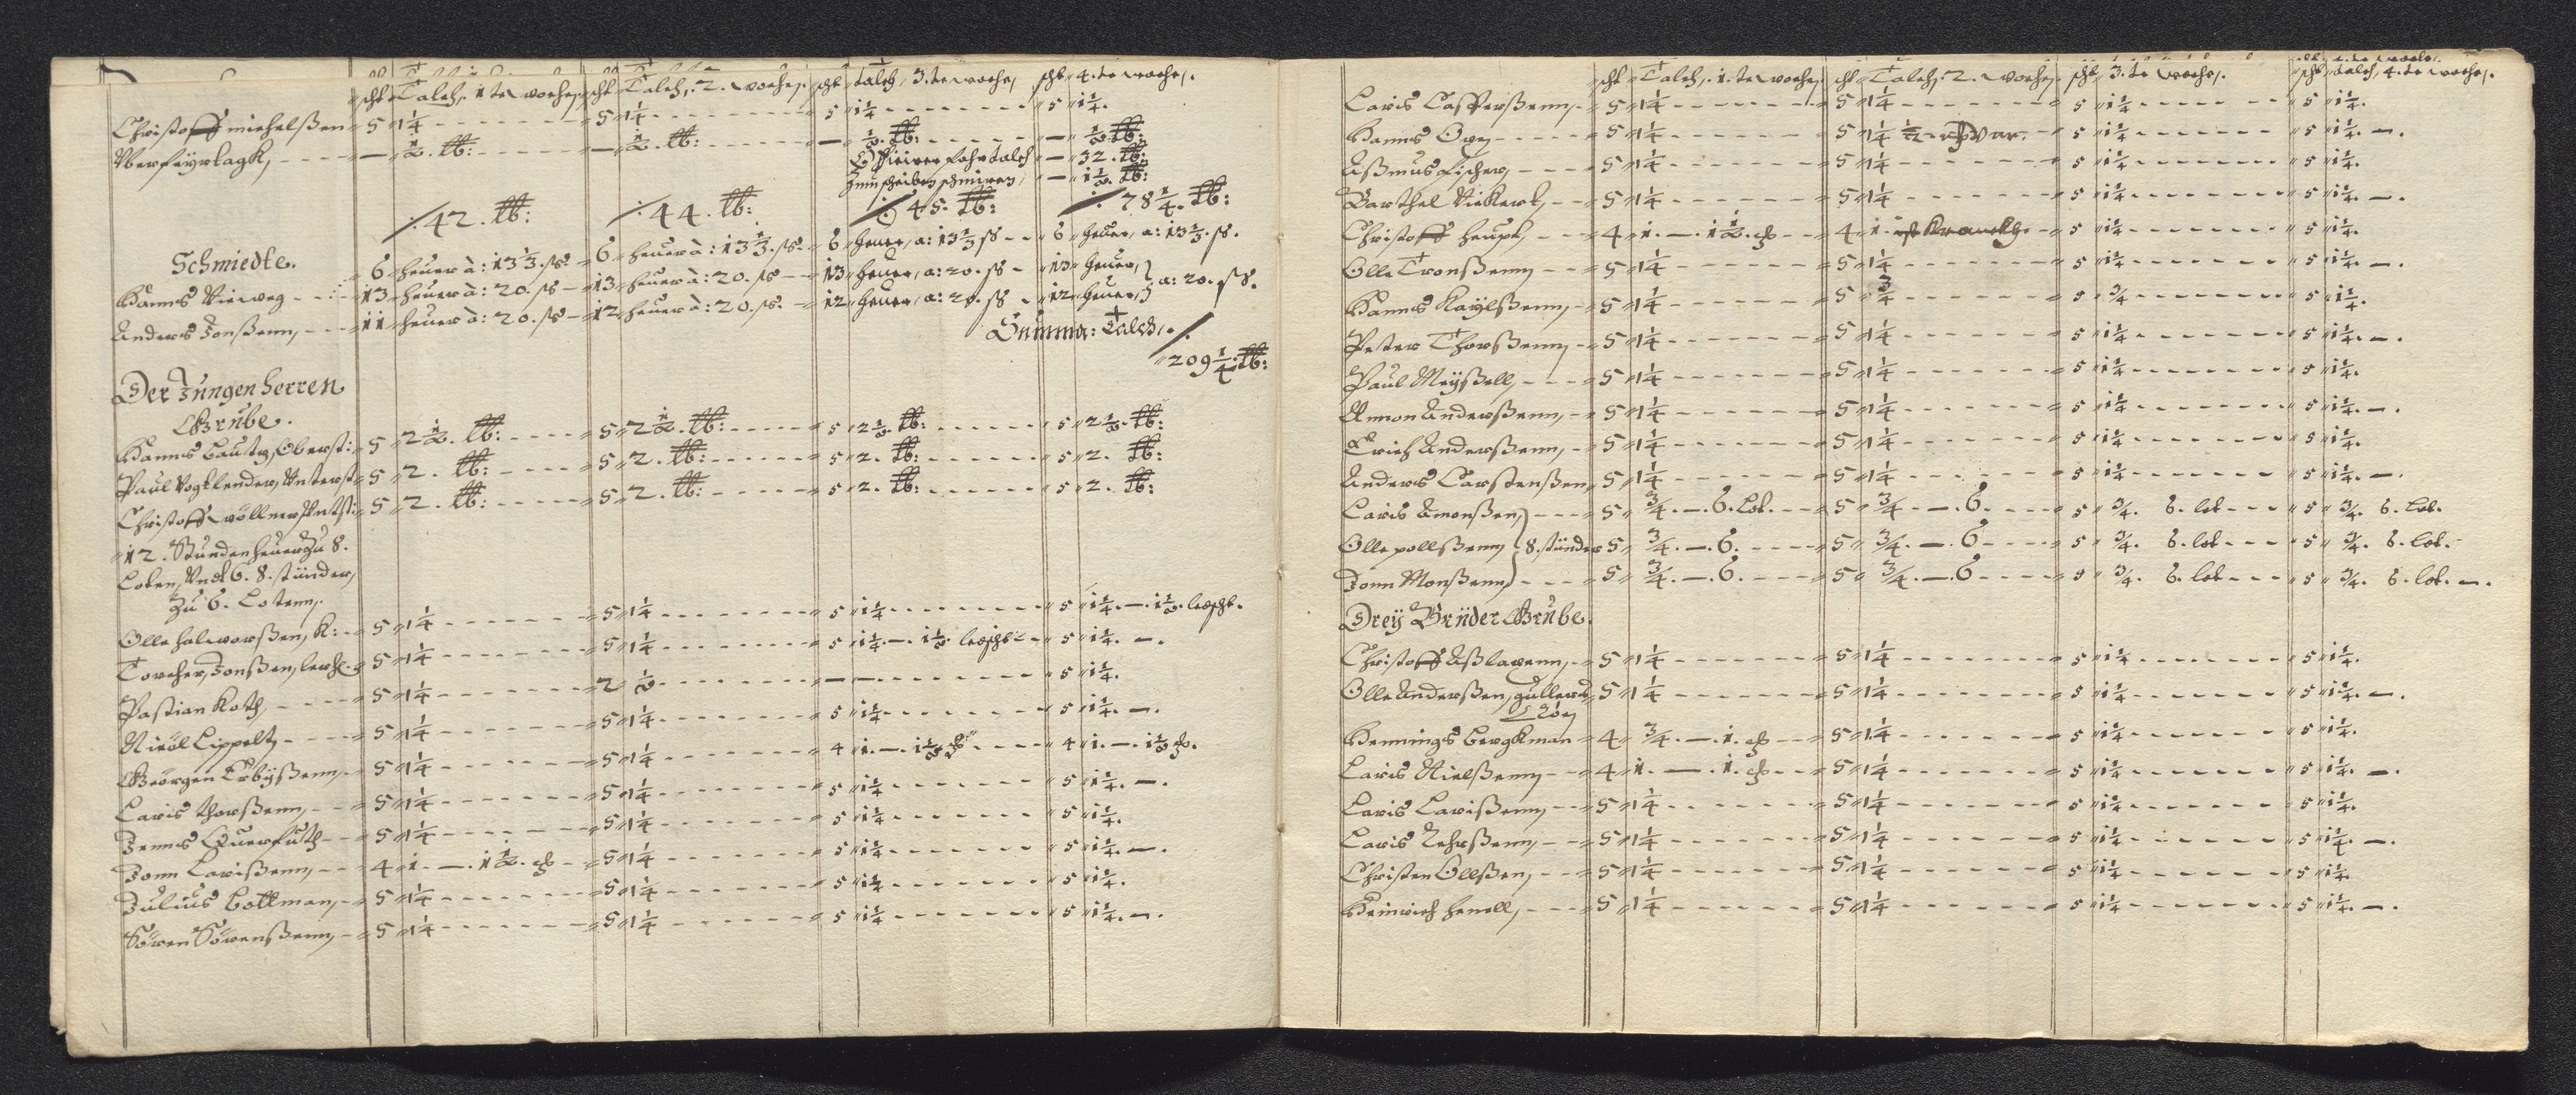 scht Talch, 1 te wochen, scht Talch, 2. wochen, scht talch, 3. te wochen, scht 4. te wochen,
Christoff michelßen 5 1¼ 5 1¼ 5 1¼ 5 1¼.
— ½. lb: — ½. lb: — ½. lb: — ½ lb:
talch — 32. lb:
Zum scheiben schmiren, — 1½. lb:
42. lb: 44. lb: 45. lb: 78¼. lb:
Schmiedte.
6 heuer à: 13⅓. ß. 6 heuer à: 13⅓. ß. 6 heuer, a: 13⅓ ß 6 heuer, a: 13⅓. ß.
Hanns Vieweg 13 heuer à: 20. ß 13 heuer à: 20. ß 13 heuer, a: 20. ß 13 heuer,
Anders Jonßenn, 11 heuer à: 20. ß 12 heuer à: 20. ß. 12 heuer, a: 20. ß 12 heuer, } a: 20. ß.
Summa: Talch,
209¼. lb:
Der Jungen herren
Grube.
Hanns Bautz, Oberst: 5 2½. lb: 5 2½. lb: 5 2½. lb: 5 2½. lb:
Paul Vogtlender, Unterst 5 2. lb: 5 2. lb: 5 2. lb: 5 2. lb:
Christoff 5 2. lb: 5 2. lb: 5 2. lb: 5 2. lb:
12. Stunden heuer zu 8.
Loten, Undt 6. 8. stünder,
zu 6. Lotenn,
Olle halworßen, K: 5 1¼ 5 1¼ 5 1¼ 5 1¼. — 1½.
Torcher, Jonßen, 5 1¼ 5 1¼ 5 1¼. — 1½. 5 1¼. —.
Pastian Koth, 5 1¼ 2 ½ — — 5 1¼.
Nicol Lippelt, 5 1¼ 5 1¼ 5 1¼ 5 1¼. —.
Georgen 5 1¼ 5 1¼ 4 1. — 1½ 4 1. — 1½
Laris thorßenn, 5 1¼ 5 1¼ 5 1¼ 5 1¼. —.
Jenns Querfuth 5 1¼ 5 1¼ 5 1¼ 5 1¼.
Jonn Larißenn, 4 1. — 1½. 5 1¼ 5 1¼ 5 1¼. —.
Julius Bottman, 5 1¼ 5 1¼ 5 1¼ 5 1¼.
Sören Sörenßenn, 5 1¼ 5 1¼ 5 1¼ 5 1¼. —.
scht Talch, 1. te wochen, scht Talch, 2. wochen, scht 3. te wochen, scht talch, 4. te wochen,
Laris Casperßenn, 5 1¼ 5 1¼ 5 1¼ 5 1¼.
Hanns 5 1¼ 5 1¼ ½ 5 1¼ 5 1¼. —.
Aßmus Fischer, 5 1¼ 5 1¼ 5 1¼ 5 1¼.
Barthel 5 1¼ 5 1¼ 5 1¼ 5 1¼. —.
Christoff heupt, 4 1. — 1½. 4 1 ist Kranckh 5 1¼ 5 1¼.
Olle Tronßenn 5 1¼ 5 1¼ 5 1¼ 5 1¼. —.
Hanns 5 1¼ 5 ¾ 5 ¾ 5 1¼.
Peter Thorßenn 5 1¼ 5 1¼ 5 1¼ 5 1¼. —.
Paul Meyßell, 5 1¼ 5 1¼ 5 1¼ 5 1¼.
Amon Anderßenn, 5 1¼ 5 1¼ 5 1¼ 5 1¼. —.
Erich Anderßenn, 5 1¼ 5 1¼ 5 1¼ 5 1¼.
Anders Carstenßen, 5 1¼ 5 1¼ 5 1¼ 5 1¼. —.
Laris Amonßen, 5 ¾. — 6. Lot. 5 ¾. — 6. 5 ¾. 6. lot 5 ¾. 6. lot.
Olle pollßenn } 8. stünder 5 ¾. — 6. 5 ¾. — 6 5 ¾. 6. lot 5 ¾. 6. lot.
Jonn Monßenn, 5 ¾. — 6. 5 ¾. — 6 5 ¾. 6. lot 5 ¾. 6. lot. —.
Dreij Brüder Grube.
Christoff Aßlacenn, 5 1¼ 5 1¼ 5 1¼ 5 1¼.
Olle Anderßen, 5 1¼ 5 1¼ 5 1¼ 5 1¼. —.
Hennings Bergkman 4 ¾. — 1. 5 1¼ 5 1¼ 5 1¼.
Laris Nielßenn 4 1. — 1. 5 1¼ 5 1¼ 5 1¼. —.
Laris Larißenn 5 1¼ 5 1¼ 5 1¼ 5 1¼.
Laris 5 1¼ 5 1¼ 5 1¼ 5 1¼. —.
Christen Ollßen, 5 1¼ 5 1¼ 5 1¼ 5 1¼.
Heinrich henell, 5 1¼ 5 1¼ 5 1¼ 5 1¼. —.